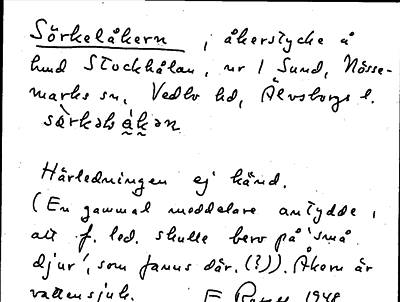 Sörkelåkern, åkerstycke å
hmd Stockhålan, nr 1 Sund, Nösse-
marks sn, Vedbo hd, Älvsborgs l.
særkəlsåkən
Härledningen ej känd.
(En gammal meddelare antydde,
att f. led. skulle bero på 'små
djur', som fanns där. (?)). Åkern är
vattensjuk. F 1948